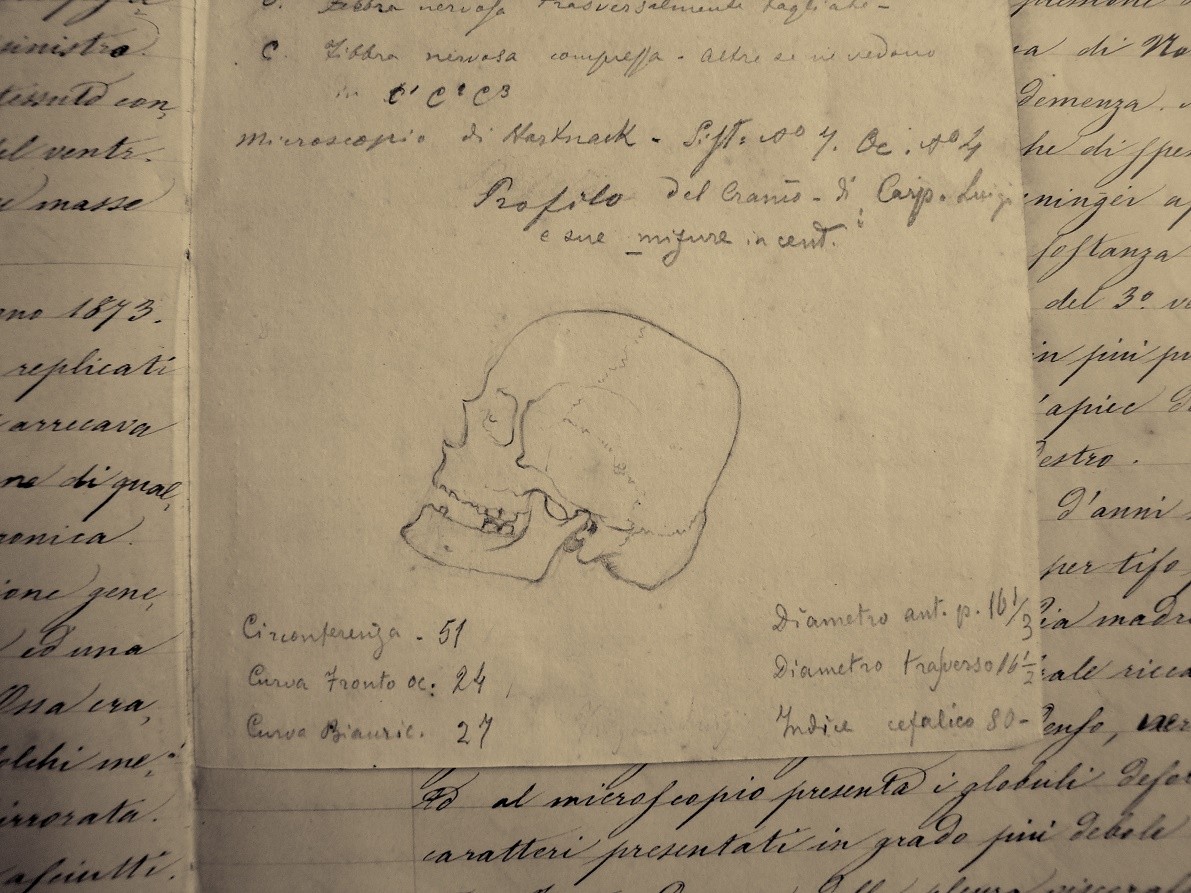 Fibbra nervosa trasversalmente tagliate -
C. Fibbra nervosa compressa - altre se ne vedono
in C¹ C² C³
Microscopio di Hartnack - Sist: N° 7. Oc. N° 4
Profilo del Cranio - di Carp. Luigi
e sue misure in cent.i
Circonferenza - 51
Curva Fronto oc: 24
Curva Biauric. 27
Diametro ant. p. 16 1/3
Diametro trasverso 16 1/2
Indice cefalico 80 -
sinistro.
tessuto con,
el ventr.
masse
nno 1873.
replicati
arrecava
ne di qual,
ronica.
ione gene,
ed una
Ossa cra,
olchi me,
irrorata.
asciutti.
a di No
demenza.
he di spes
ningei
sostanza
del 3° ve
in piú pu
destro.
d'anni
per tifo
ia madre
rale ricca
enso, ver
ed al microscopio presenta i globuli defor
caratteri presentati in grado piú debole